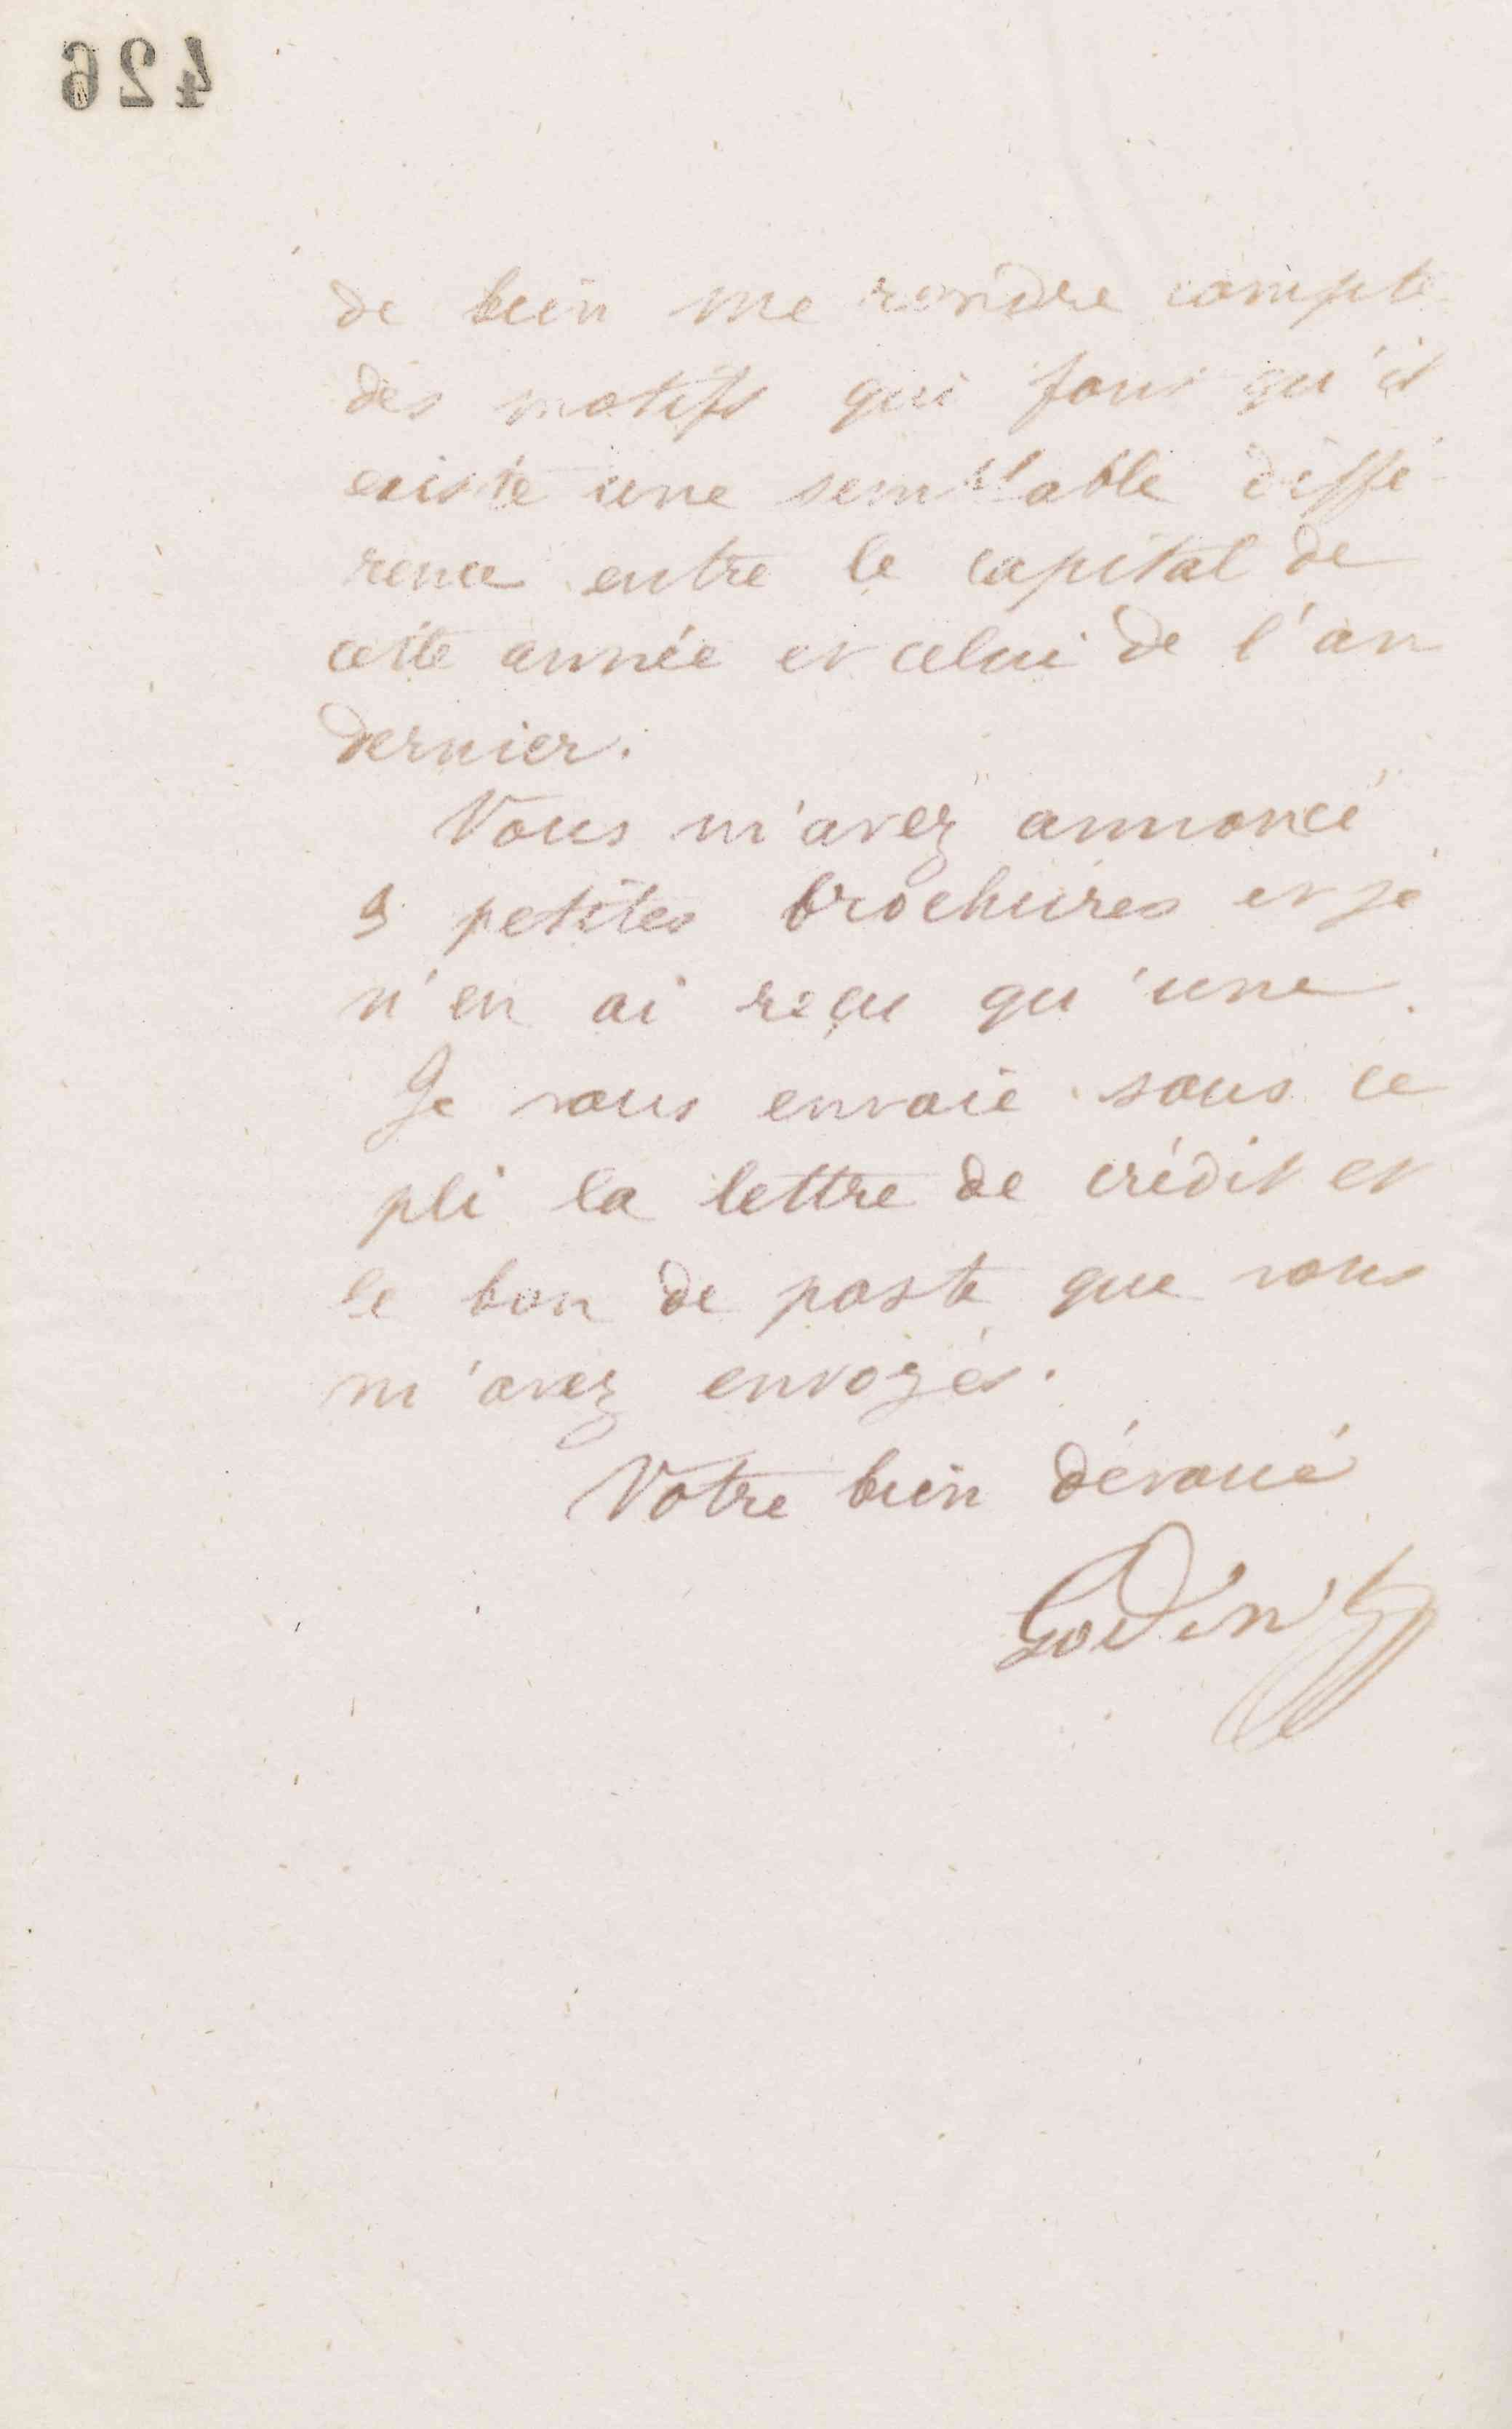 426
de bien me rendre compte
des motifs qui font qu'il
existe une semblable diffé-
rence entre le capital de
cette année et celui de l'an
dernier.
Vous m'avez annoncé
3 petites brochures et je
n'en ai reçu qu'une.
Je vous envoie sous ce
pli la lettre de crédit et
le bon de poste que vous
m'avez envoyés.
Votre bien dévoué
Godin